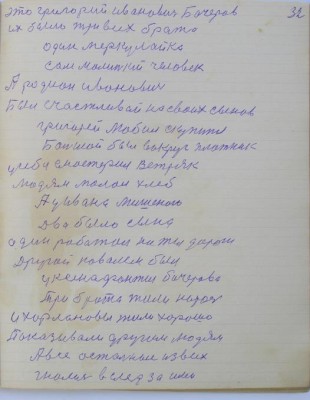 32
это григорий Иванович Бочеров
их было три всих брата
один меркулайка
сам малиткий человек
А родион иванович
Был счастливай на своих сынов
григорей Мобил
Боншой был вокруг плотник
учеби смастерил Ветряк
людям малол хлеб
А у Ивана мишеного
Два было сына
один работал на жел дороги
Другой ковалем был
у ксенафонтия бочерова
Три брата жили нарох
и харлановы жили хорошо
Показывали другим людям
А все остальные из всих
гнались в след за ими